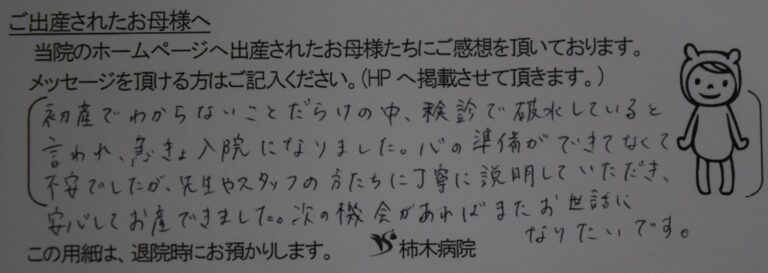 ご出産されたお母様へ
当院のホームページへ出産されたお母様たちにご感想を頂いております。
メッセージを頂ける方はご記入ください。(HPへ掲載させて頂きます。)
初産でわからないことだらけの中、検診で破水していると
言われ、急きょ入院になりました。心の準備ができてなくて
不安でしたが、先生やスタッフの方たちに丁寧に説明していただき、
安心してお産できました。次の機会があればまたお世話に
なりたいです。
この用紙は、退院時にお預かりします。 柿木病院